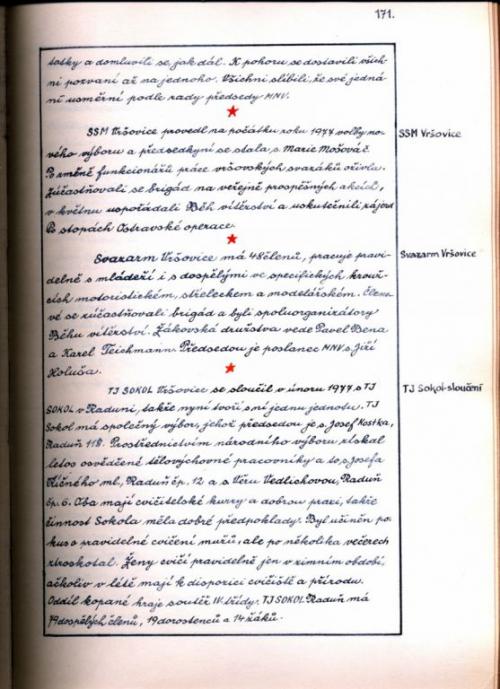 171.
totky a domluvili se, jak dál. K pohovoru se dostavili všich-
ni pozvaní až na jednoho. Všichni slíbili, že své jedná-
ní usměrní podle rady předsedy MNV.
SSM Vršovice provedl na počátku roku 1977 volby no-
vého výboru a předsedkyní se stala s. Marie Mošová č.
Po změně funkcionářů práce vršovských svazáků oživla.
Zúčastňovali se brigád na veřejně prospěšných akcích,
v květnu uspořádali Běh vítězství a uskutečnili zájezd
Po stopách Ostravské operace.
SSM Vršovice
Svazarm Vršovice má 48 členů, pracuje pravi-
delně s mládeží i s dospělými ve specifických krouž-
cích motoristickém, střeleckém a modelářském. Členo-
vé se zúčastňovali brigád a byli spoluorganizátory
Běhu vítězství. Žákovská družstva vede Pavel Bena
a Karel Teichmann. Předsedou je poslanec MNV s. Jiří
Holuša.
Svazarm Vršovice
TJ SOKOL Vršovice se sloučil v únoru 1977 s TJ
SOKOL v Raduni, takže nyní tvoří s ní jednu jednotu. TJ
Sokol má společný výbor, jehož předsedou je s. Josef Kostka,
Raduň 118. Prostřednictvím národního výboru získal
letos osvědčené tělovýchovné pracovníky a to, s. Josefa
Říčného ml., Raduň čp. 12 a s. Věru Vedlichovou, Raduň
čp. 6. Oba mají cvičitelské kurzy a dobrou praxi, takže
činnost Sokola měla dobré předpoklady. Byl učiněn po-
kus o pravidelné cvičení mužů, ale po několika večerech
ztroskotal. Ženy cvičí pravidelně jen v zimním období,
ačkoliv v létě mají k dispozici cvičiště a přírodu.
Oddíl kopané hraje soutěž IV. třídy. TJ SOKOL Raduň má
79 dospělých členů, 19 dorostenců a 14 žáků.
TJ Sokol-sloučění